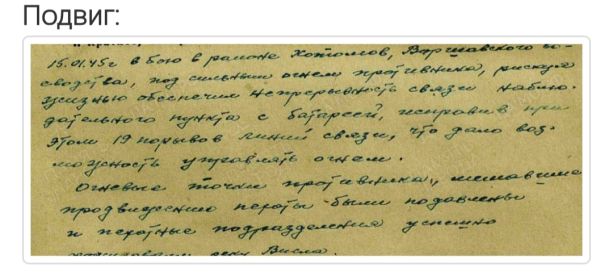 Подвиг:
15.01.45г в бою в районе Хотомов, Варшавского во-
еводства, под сильным огнем противника, рискуя
жизнью обеспечил непрерывность связи наблю-
дательного пункта с батареей, исправив при
этом 19 порывов линий связи, что дало воз-
можность управлять огнем.
Огневые точки противника, мешавшие
продвижению пехоты были подавлены
и пехотные подразделения успешно
реку Висла.